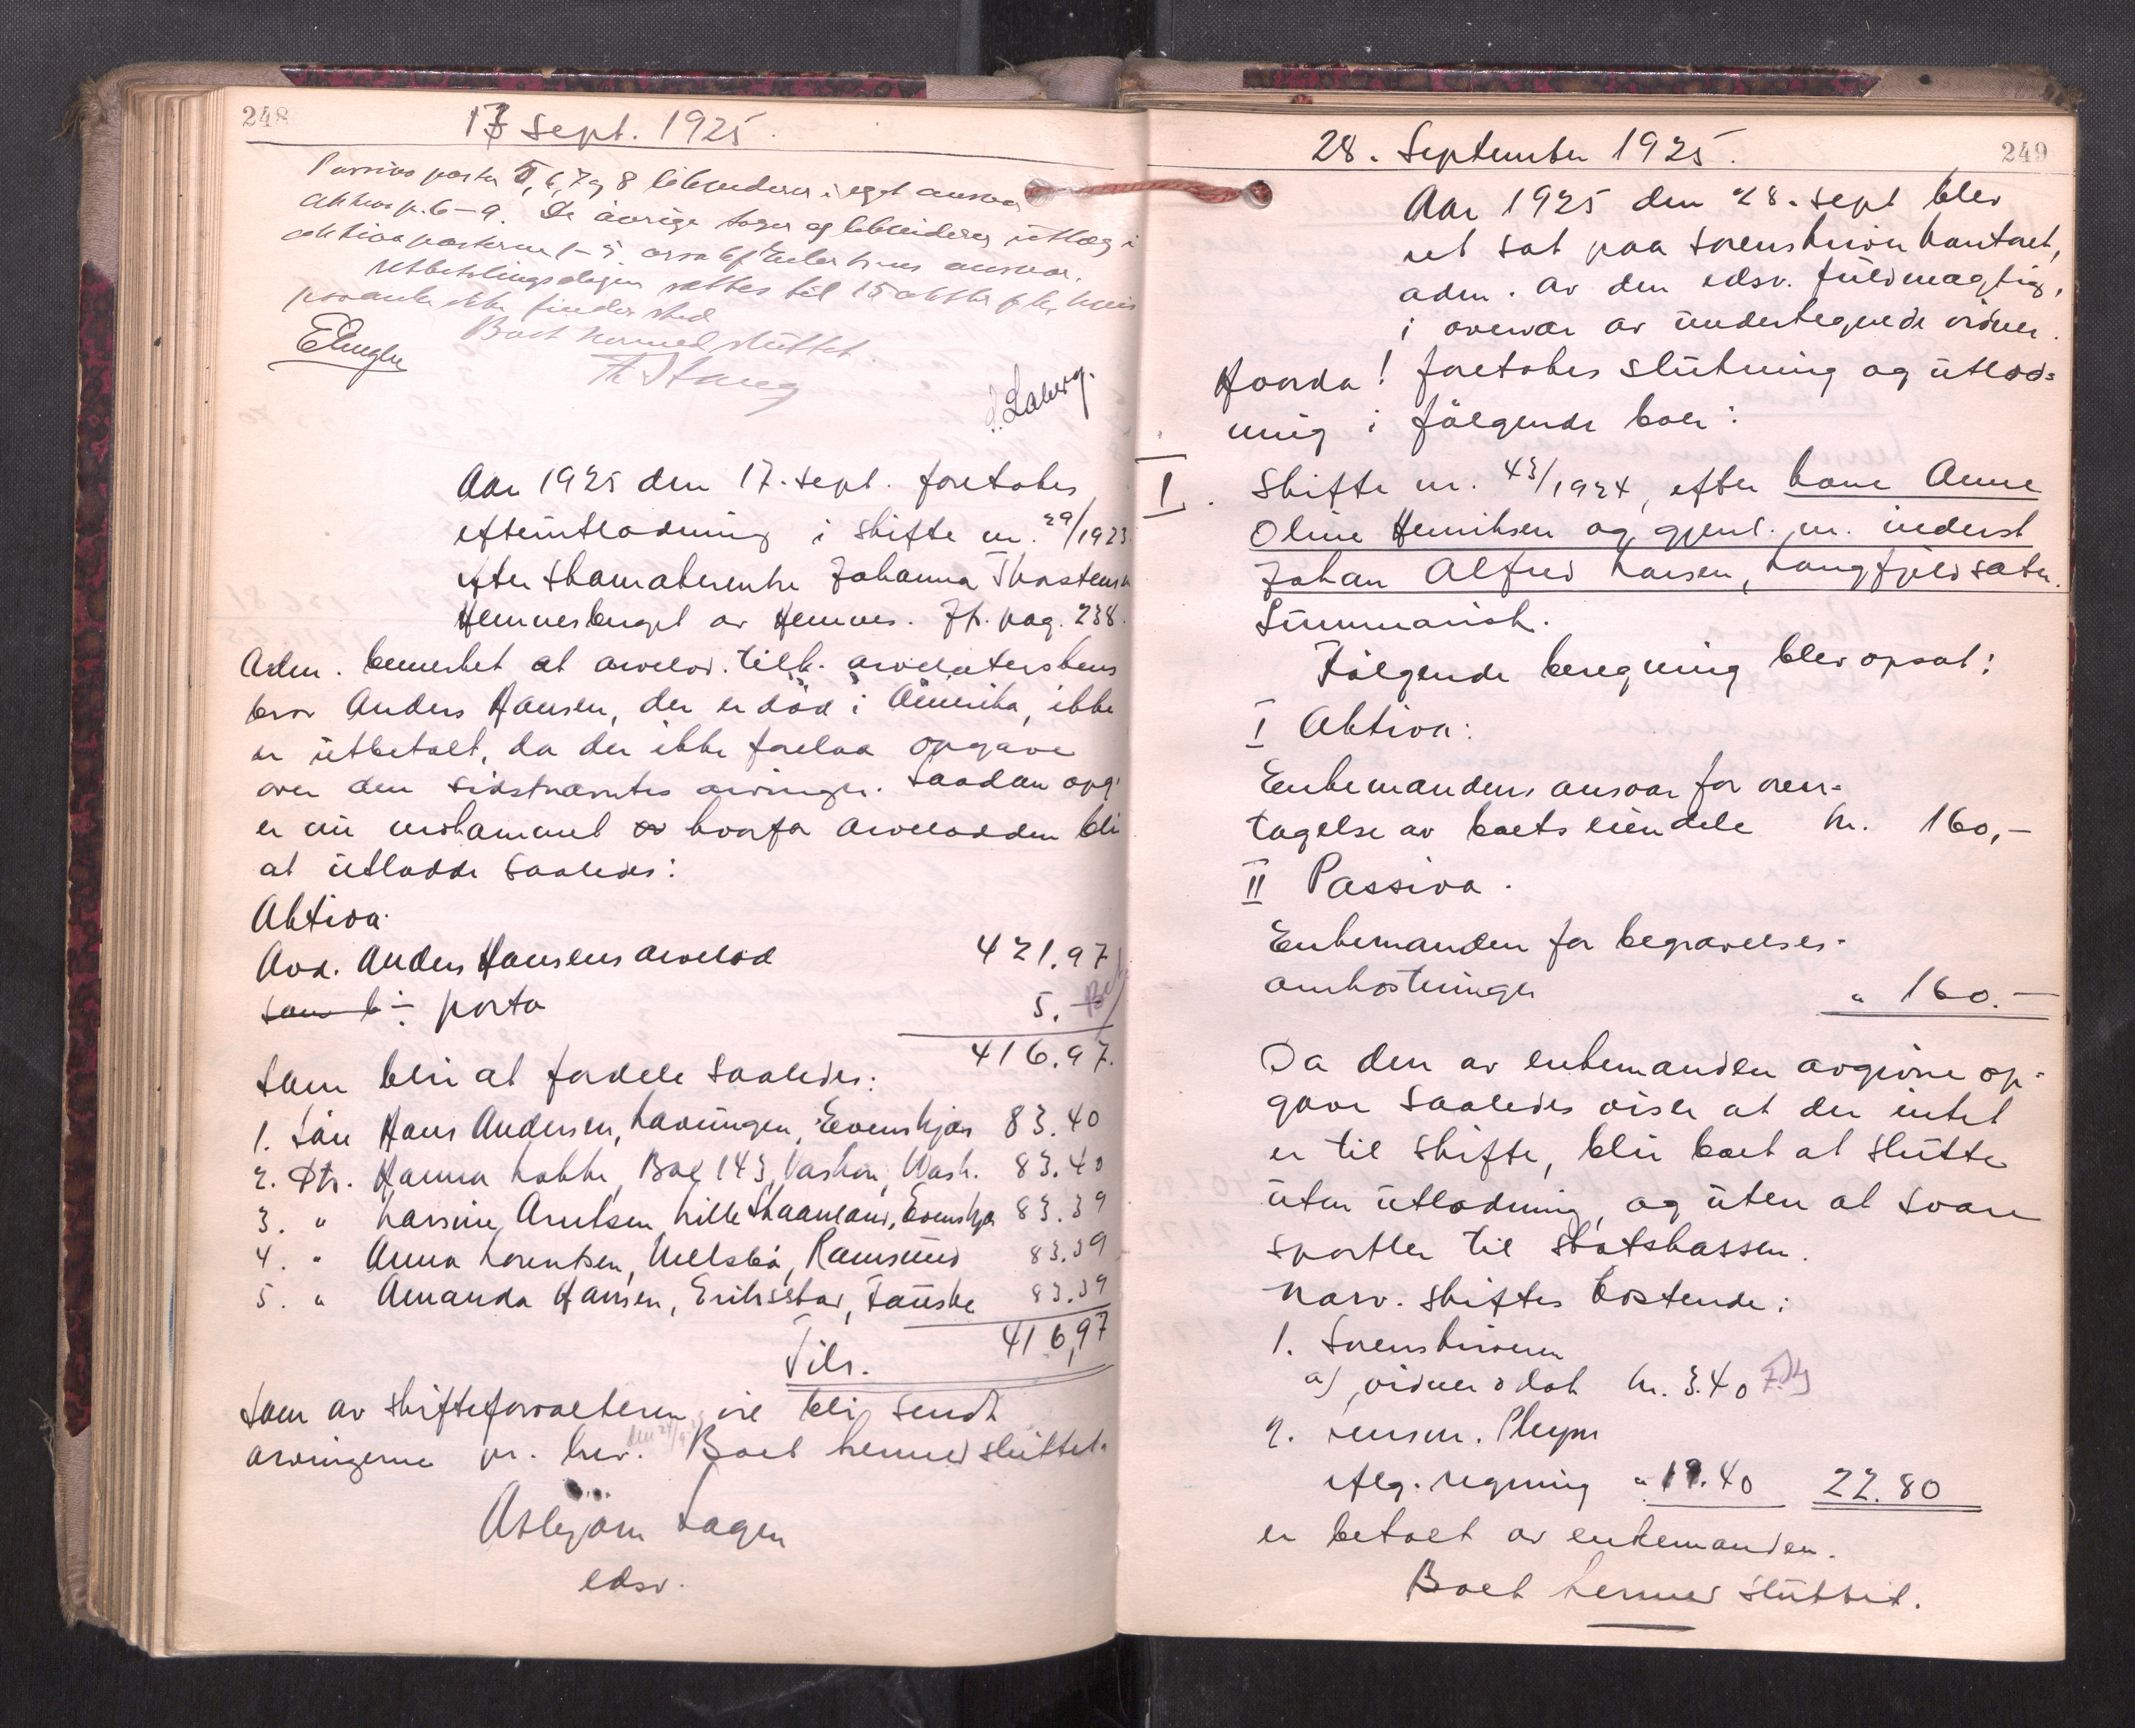 248
17 Sept. 1925.
Passiva poster 5, 6, 7 og 8 likvideres i eget ansvar
aktiva p. 6-9. De övrige tages og likvideres utlæg i
aktiva posterne 1-5.
utbetalingsdagen sættes til 15 oktbr
finder sted
Boet hermed sluttet.
Aar 1925 den 17. sept. foretokes
efterutlodning i skifte nr. 29/1923
efter skomakerenke Johanna Thorstensen
Hemnesberget av Hemnes. Jfr. pag. 238.
Adm. bemerket at arvelod. tilk. arvelaterskens
bror Anders Hansen, der er död i Amerika, ikke
er ütbetalt, da der ikke forelaa opgave
over den sidstnævntes arvinger. Saadan opg.
er nü indkommet hvorfor arvelodden bli
at ütlodde saaledes:
Aktiva.
Avd. Anders Hansens arvelod 421.97
÷ porto 5.-
416.97.
Som blir at fordele saaledes:
1. Sön Hans Andersen, Lavangen, Evenskjær 83.40
2. Dtr. Hanna Lokke, Box 143, Vashon, Wash. 83.40
3. " Larsine Arntsen, Lille Skaanland, Evenskjær 83.39
4. " Anna Lorentsen, , Ramsund 83.39
5. " Amanda Hansen, Erikstad, Fauske 83.39
Tils. 416,97
Som av skifteforvalteren vil bli sendt
arvingerne pr. brev. Boet hermed sluttet.
Asbjörn Lagen
edsv.
28. September 1925.
249
Aar 1925 den 28. sept blev
ret sat paa sorenskriverkontoret,
adm. av den edsv. fuldmægtig,
i overvær av undertegnede vidner.
Hvorda! foretokes slutning og ütlod=
ning i fölgende boer:
I. Skifte nr. 43/1924, efter kone Anne
Oline Henriksen og gjenl. m. inderst
Johan Alfred Larsen, Langfjeldsæter.
Summarisk.
Fölgende beregning blev opsat:
I Aktiva:
Enkemandens ansvar for over-
tagelse av boets eiendele kr. 160,-
II Passiva.
Enkemanden for begravelses-
omkostninger " 160.-
Da den av enkemanden avgivne op-
gave saaledes viser at der intet
er til skifte, blir boet at slutte
üten ütlodning, og üten at svare
sportler til statskassen.
Nærv. skiftes kostende:
1. Sorenskriveren
a) vidner o dok kr. 3.40
2. lensm. Pleym
iflg. regning " 19.40 22.80
er betalt av enkemanden.
Boet hermed sluttet.